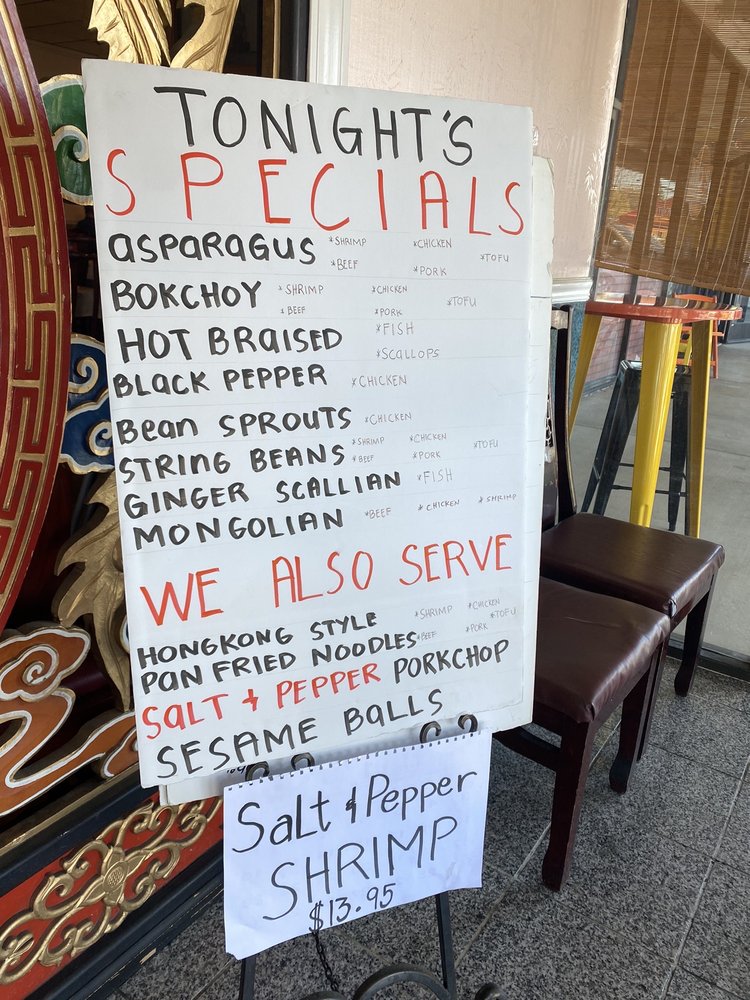 TONIGHT'S
SPECIALS
ASPARAGUS *SHRIMP *CHICKEN *TOFU
*BEEF *PORK
BOKCHOY *SHRIMP *CHICKEN *TOFU
*BEEF *PORK
HOT BRAISED *FISH
*SCALLOPS
BLACK PEPPER *CHICKEN
Bean SPROUTS *CHICKEN
STRING BEANS *SHRIMP *CHICKEN *TOFU
*BEEF *PORK
GINGER SCALLIAN *FISH
MONGOLIAN *BEEF *CHICKEN *SHRIMP
WE ALSO SERVE
HONGKONG STYLE *SHRIMP *CHICKEN *TOFU
PAN FRIED NOODLES *BEEF *PORK
SALT + PEPPER PORKCHOP
SESAME BALLS
Salt & Pepper
SHRIMP
$13.95